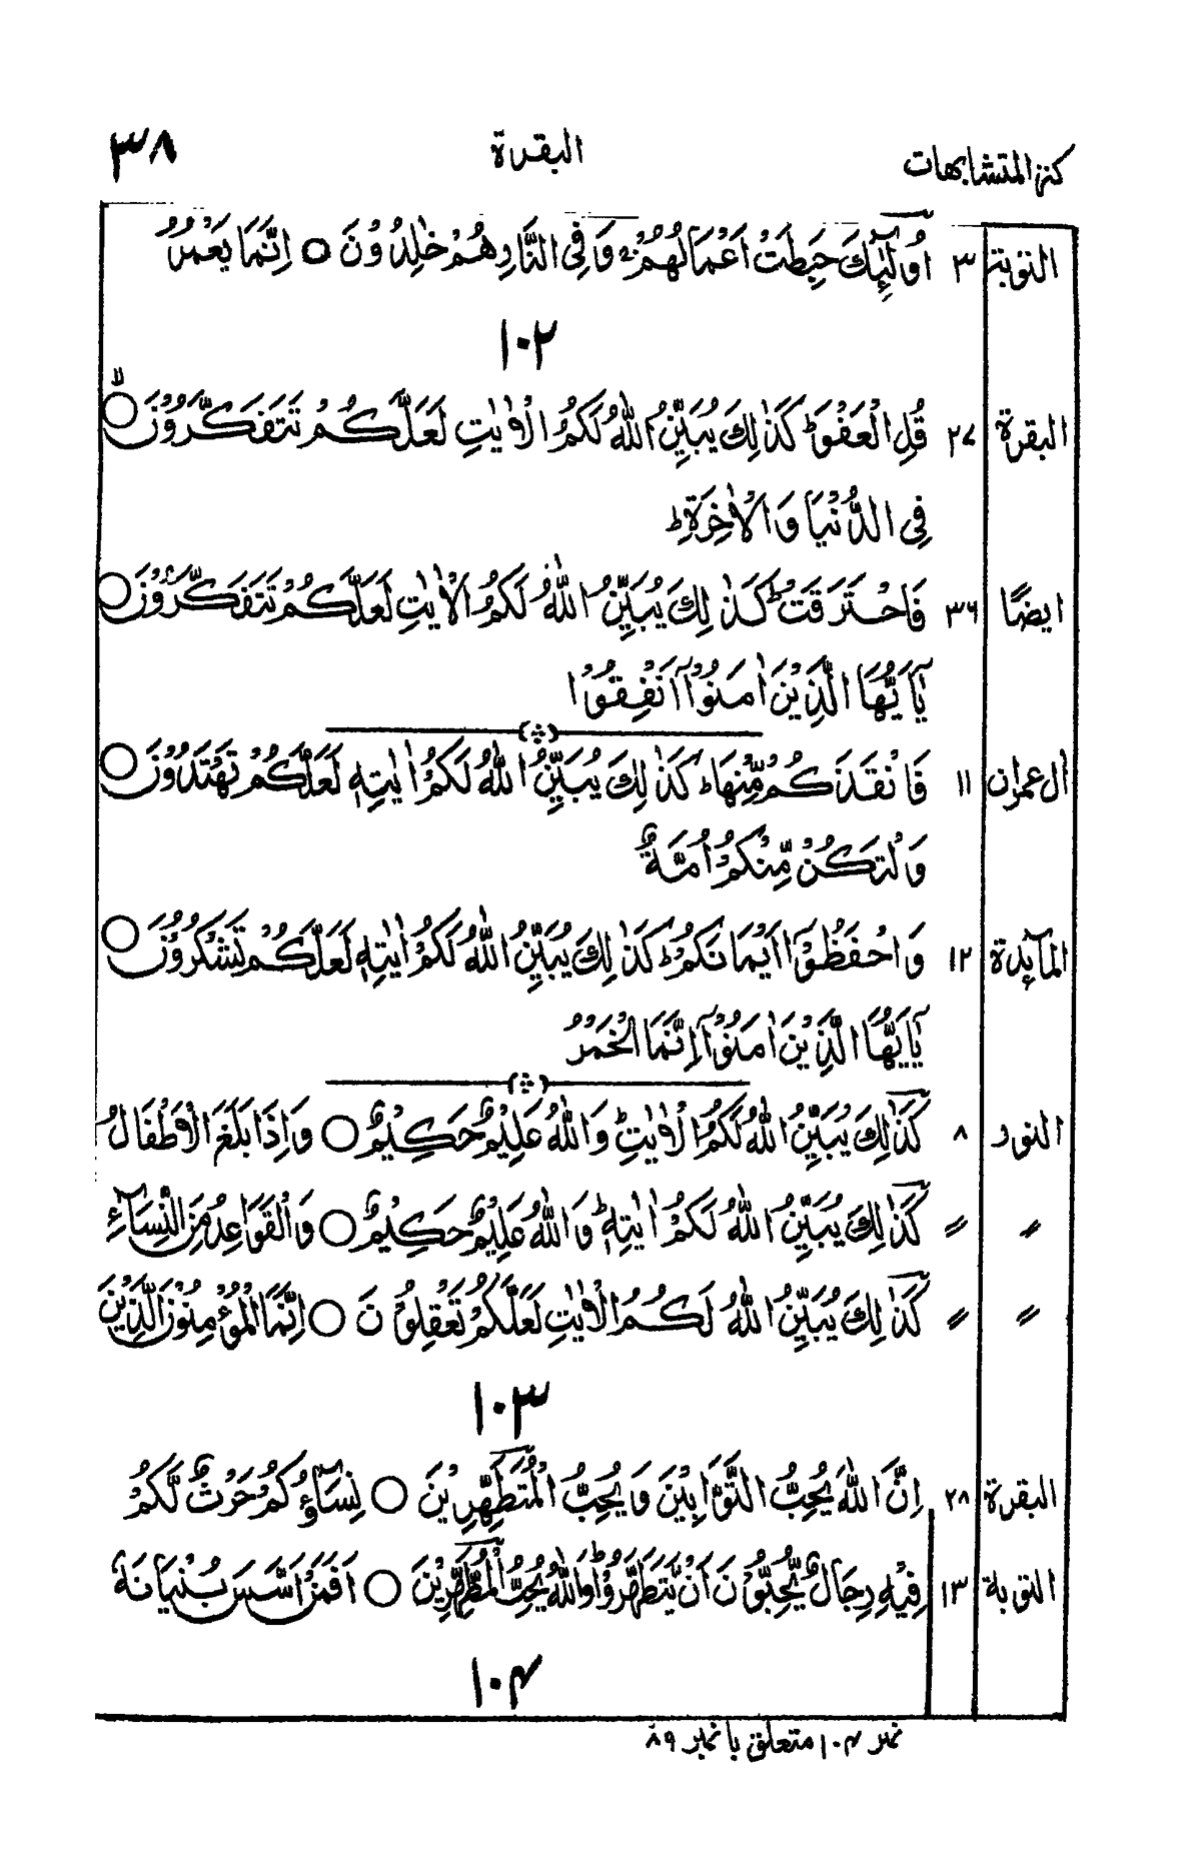 كنز المتشابهات البقرة ٣٨
التوبة ٣ اُولٰٓئِكَ حَبِطَتْ اَعْمَالُهُمْ ۚ وَفِي النَّارِ هُمْ خٰلِدُوْنَ ○ اِنَّمَا يَعْمُرُ
١٠٢
البقرة ٢٧ قُلِ الْعَفْوَ ؕ كَذٰلِكَ يُبَيِّنُ اللّٰهُ لَكُمُ الْاٰيٰتِ لَعَلَّكُمْ تَتَفَكَّرُوْنَ ○ ۙ
فِى الدُّنْيَا وَالْاٰخِرَةِ ؕ
ايضًا ٣٦ فَاحْتَرَقَتْ ؕ كَذٰلِكَ يُبَيِّنُ اللّٰهُ لَكُمُ الْاٰيٰتِ لَعَلَّكُمْ تَتَفَكَّرُوْنَ ○
يٰۤاَيُّهَا الَّذِيْنَ اٰمَنُوْۤا اَنْفِقُوْا
اٰل عمران ١١ فَاَنْقَذَكُمْ مِّنْهَا ؕ كَذٰلِكَ يُبَيِّنُ اللّٰهُ لَكُمْ اٰيٰتِهٖ لَعَلَّكُمْ تَهْتَدُوْنَ ○
وَلْتَكُنْ مِّنْكُمْ اُمَّةٌ
المآئدة ١٢ وَاحْفَظُوْۤا اَيْمَانَكُمْ ؕ كَذٰلِكَ يُبَيِّنُ اللّٰهُ لَكُمْ اٰيٰتِهٖ لَعَلَّكُمْ تَشْكُرُوْنَ ○
يٰۤاَيُّهَا الَّذِيْنَ اٰمَنُوْۤا اِنَّمَا الْخَمْرُ
النور ٨ كَذٰلِكَ يُبَيِّنُ اللّٰهُ لَكُمُ الْاٰيٰتِ ؕ وَاللّٰهُ عَلِيْمٌ حَكِيْمٌ ○ وَاِذَا بَلَغَ الْاَطْفَالُ
〃 〃 كَذٰلِكَ يُبَيِّنُ اللّٰهُ لَكُمْ اٰيٰتِهٖ ؕ وَاللّٰهُ عَلِيْمٌ حَكِيْمٌ ○ وَالْقَوَاعِدُ مِنَ النِّسَآءِ
〃 〃 كَذٰلِكَ يُبَيِّنُ اللّٰهُ لَكُمُ الْاٰيٰتِ لَعَلَّكُمْ تَعْقِلُوْنَ ○ اِنَّمَا الْمُؤْمِنُوْنَ الَّذِيْنَ
١٠٣
البقرة ٢٨ اِنَّ اللّٰهَ يُحِبُّ التَّوَّابِيْنَ وَيُحِبُّ الْمُتَطَهِّرِيْنَ ○ نِسَآؤُكُمْ حَرْثٌ لَّكُمْ
التوبة ١٣ فِيْهِ رِجَالٌ يُّحِبُّوْنَ اَنْ يَّتَطَهَّرُوْا ؕ وَاللّٰهُ يُحِبُّ الْمُطَّهِّرِيْنَ ○ اَفَمَنْ اَسَّسَ بُنْيَانَهٗ
١٠٤
نمبر ١٠٤ متعلق بانمبر ٨٩